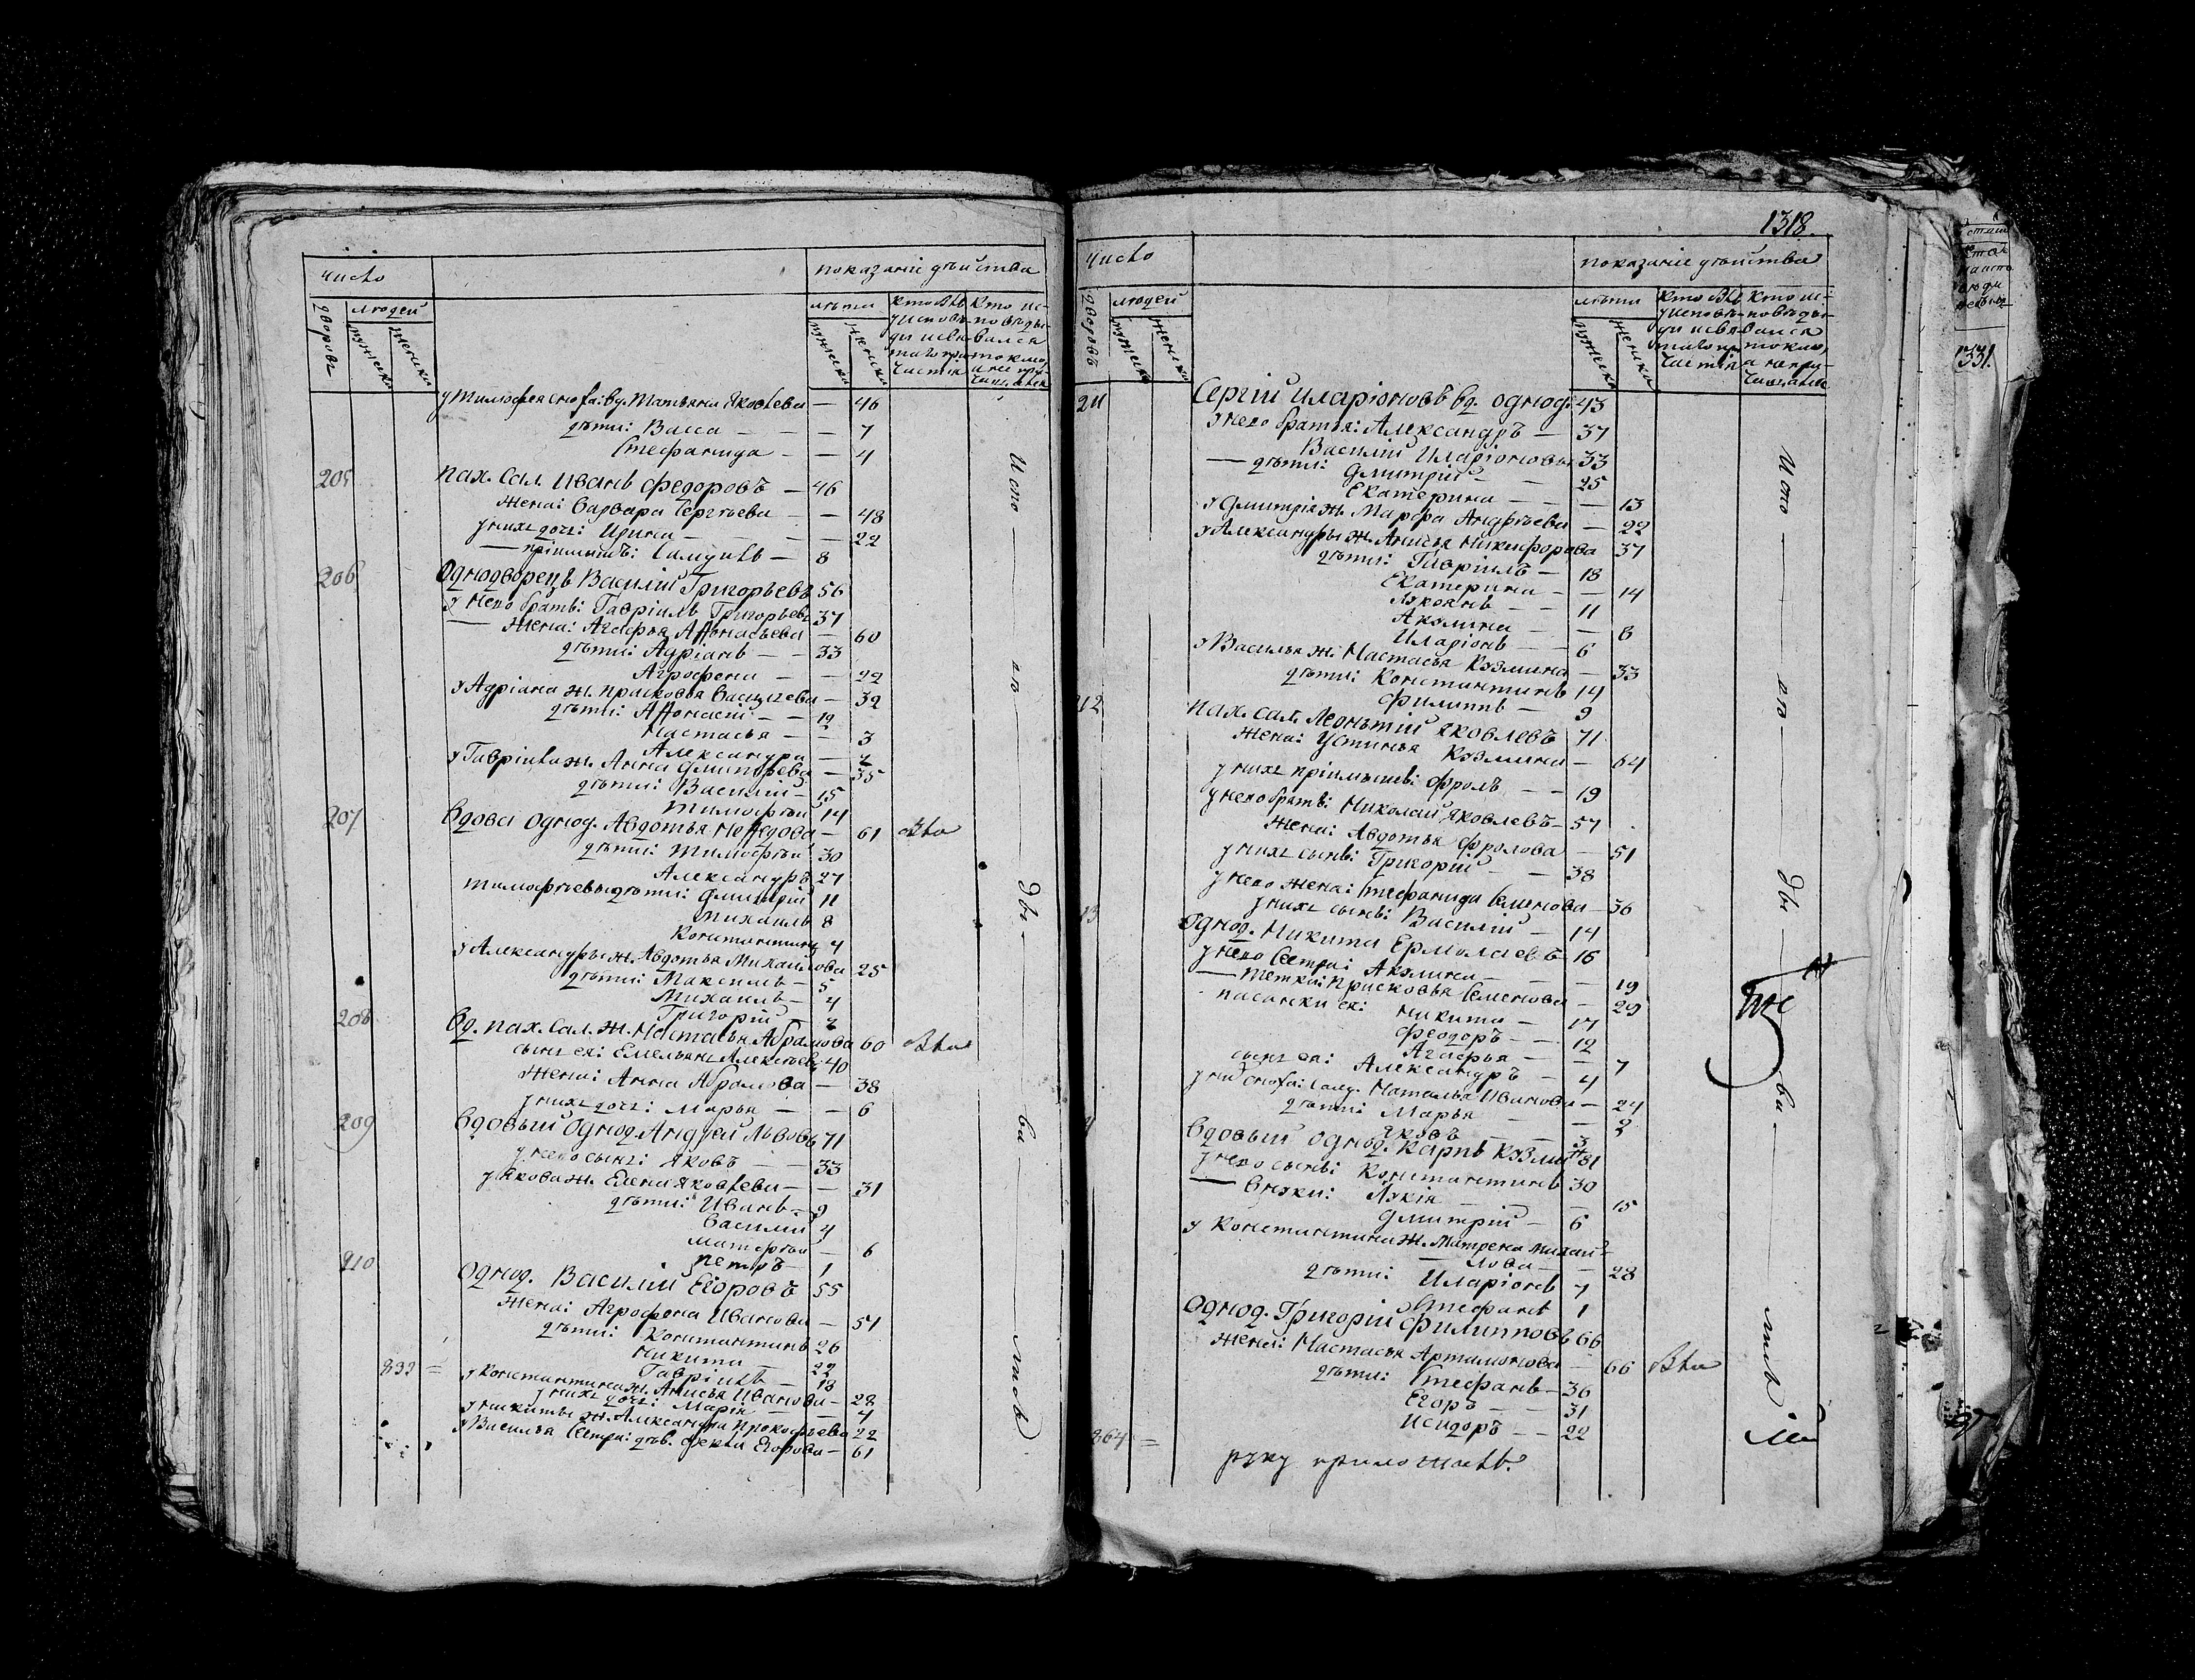 число
показаніе дѣйства
дворовъ
людей
мужеска
женска
лѣта
мужеска
женска
у Тимофея сноха: вд. Татьяна Яковлева — 46
дѣти: Васса — — — 7
Стефанида — — 4
205 пах. сол. Иванъ Федоровъ — 46
жена: Варвара Сергѣева — — 48
у нихъ дочь: Ирина — — — 22
— пріимышъ: Самуилъ — 8
206 Однодворецъ Василій Григорьевъ 56
у него братъ: Гавріилъ Григорьевъ 37
— жена: Агафья Афонасьева — 60
дѣти: Адріанъ — — 33
Агрофена — — 22
у Адріана ж. Прасковья Васильева — 32
дѣти: Афонасій — — 12
Настасья — — 3
Александра — 2
у Гавріила ж. Анна Дмитрѣева — 35
дѣти: Василій — 15
Тимофѣй 14
207 Вдова Однод. Авдотья Нефедова — 61
дѣти: Тимофѣй 30
Александръ 27
Тимофѣевы дѣти: Дмитрій 11
Михаилъ 8
Константинъ 4
у Александры ж. Авдотья Михайлова 25
дѣти: Максимъ — 5
Михаилъ — 4
Григорій — 2
208 Вд. пах. сол. ж. Настасья Абрамова 60
сынъ ея: Емельянъ Алексѣевъ 40
жена: Анна Абрамова — 38
у нихъ дочь: Марья — — 6
209 Вдовый Однод. Андрей Львовъ 71
у него сынъ: Яковъ — — 33
у Якова ж. Елена Яковлева — — 31
дѣти: Иванъ — 9
Василій 4
— 6
Петръ — 1
210 Однод. Василій Егоровъ 55
жена: Агрофена Иванова — 54
дѣти: Константинъ 26
Никита — 22
Гавріилъ — 18
832 =
у Константина ж. Анисья Иванова — 28
у нихъ дочь: Марія — — 4
у Никиты ж. Александра Прокофьева 22
у Василья сестра: дѣв. Фекла Егорова — 61
1318.
число
показаніе дѣйства
дворовъ
людей
мужеска
женска
лѣта
мужеска
женска
211 Сергій Иларіоновъ вд. однод. 43
у него братья: Александръ — 37
Василій Иларіоновы 33
— дѣти: Дмитрій — — 25
Екатерина — — 13
у Дмитрія ж. Марфа Андрѣева — 22
у Александры ж. Анисья Никифорова 37
дѣти: Гавріилъ — 18
Екатерина — — 14
Лукоянъ — — 11
Акулина — — 8
Иларіонъ — — 6
у Василья ж. Настасья Кузмина — 33
дѣти: Константинъ 14
Филиппъ — 9
12 пах. сол. Леонтій Яковлевъ 71
жена: Устинья Кузмина — 64
у нихъ пріимышъ: Фролъ — — 19
у него братъ: Николай Яковлевъ — 57
жена: Авдотья Фролова — 51
у нихъ сынъ: Григорій — — 38
у него жена: Стефанида Семенова — 36
у нихъ сынъ: Василій — 14
13 Однод. Никита Ермолаевъ 16
у него сестра: Акулина — — 19
— тетка: Прасковья Семенова — 29
пасынки ея: Никита — 17
Феодоръ — — 12
Агафья — — 7
сынъ ея: Александръ — 4
сноха: солд. Наталья Иванова — 24
дѣти: Марья — — 2
Яковъ — — 3
Вдовый Однод. Карпъ Кузмин 81
у него сынъ: Константинъ 30
— внуки: Лукія — — 15
Дмитрій — 6
у Константина ж. Матрена Михай-
лова — — 28
дѣти: Иларіонъ 7
Стефанъ 1
Однод. Григорій Филипповъ 66
жена: Настасья Артамонова — 66
дѣти: Стефанъ — 36
Егоръ — — 31
Исидоръ — — 22
864 =
руку приложилъ.
331.